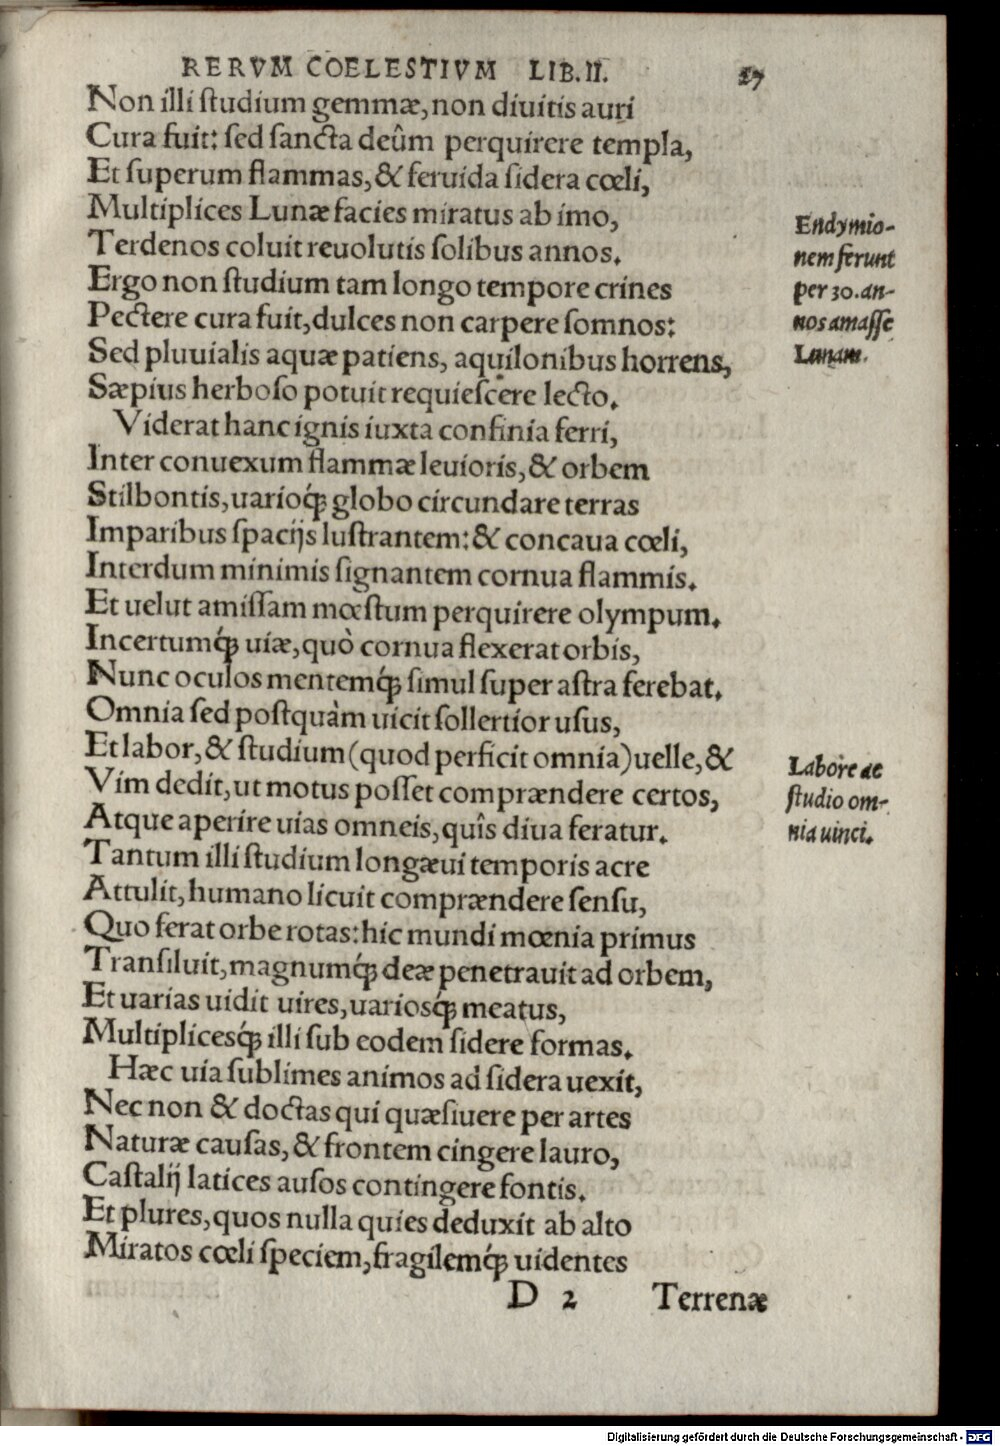 RERVM COELESTIVM LIB. II. 27
Non illi ſtudium gemmæ, non diuitis auri
Cura fuit: ſed ſancta deûm perquirere templa,
Et ſuperum flammas, & feruida ſidera cœli,
Multiplices Lunæ facies miratus ab imo,
Terdenos coluit reuolutis ſolibus annos.
Ergo non ſtudium tam longo tempore crines
Pectere cura fuit, dulces non carpere ſomnos:
Sed pluuialis aquæ patiens, aquilonibus horrens,
Sæpius herboſo potuit requieſcere lecto.
Endymio-
nem ferunt
per 30. an-
nos amaſſe
Lunam.
Viderat hanc ignis iuxta confinia ferri,
Inter conuexum flammæ leuioris, & orbem
Stilbontis, uarioq́; globo circundare terras
Imparibus ſpacijs luſtrantem: & concaua cœli,
Interdum minimis ſignantem cornua flammis.
Et uelut amiſſam mœſtum perquirere olympum.
Incertumq́; uiæ, quò cornua flexerat orbis,
Nunc oculos mentemq́; ſimul ſuper aſtra ferebat.
Omnia ſed poſtquàm uicit ſollertior uſus,
Et labor, & ſtudium (quod perficit omnia) uelle, &
Vim dedit, ut motus poſſet comprændere certos,
Atque aperire uias omneis, quîs diua feratur.
Labore ac
ſtudio om-
nia uinci.
Tantum illi ſtudium longæui temporis acre
Attulit, humano licuit comprændere ſenſu,
Quo ferat orbe rotas: hic mundi mœnia primus
Tranſiluit, magnumq́; deæ penetrauit ad orbem,
Et uarias uidit uires, uariosq́; meatus,
Multiplicesq́; illi ſub eodem ſidere formas.
Hæc uia ſublimes animos ad ſidera uexit,
Nec non & doctas qui quæſiuere per artes
Naturæ cauſas, & frontem cingere lauro,
Caſtalij latices auſos contingere fontis.
Et plures, quos nulla quies deduxit ab alto
Miratos cœli ſpeciem, fragilemq́; uidentes
D 2 Terrenæ
Digitalisierung gefördert durch die Deutsche Forschungsgemeinschaft - DFG